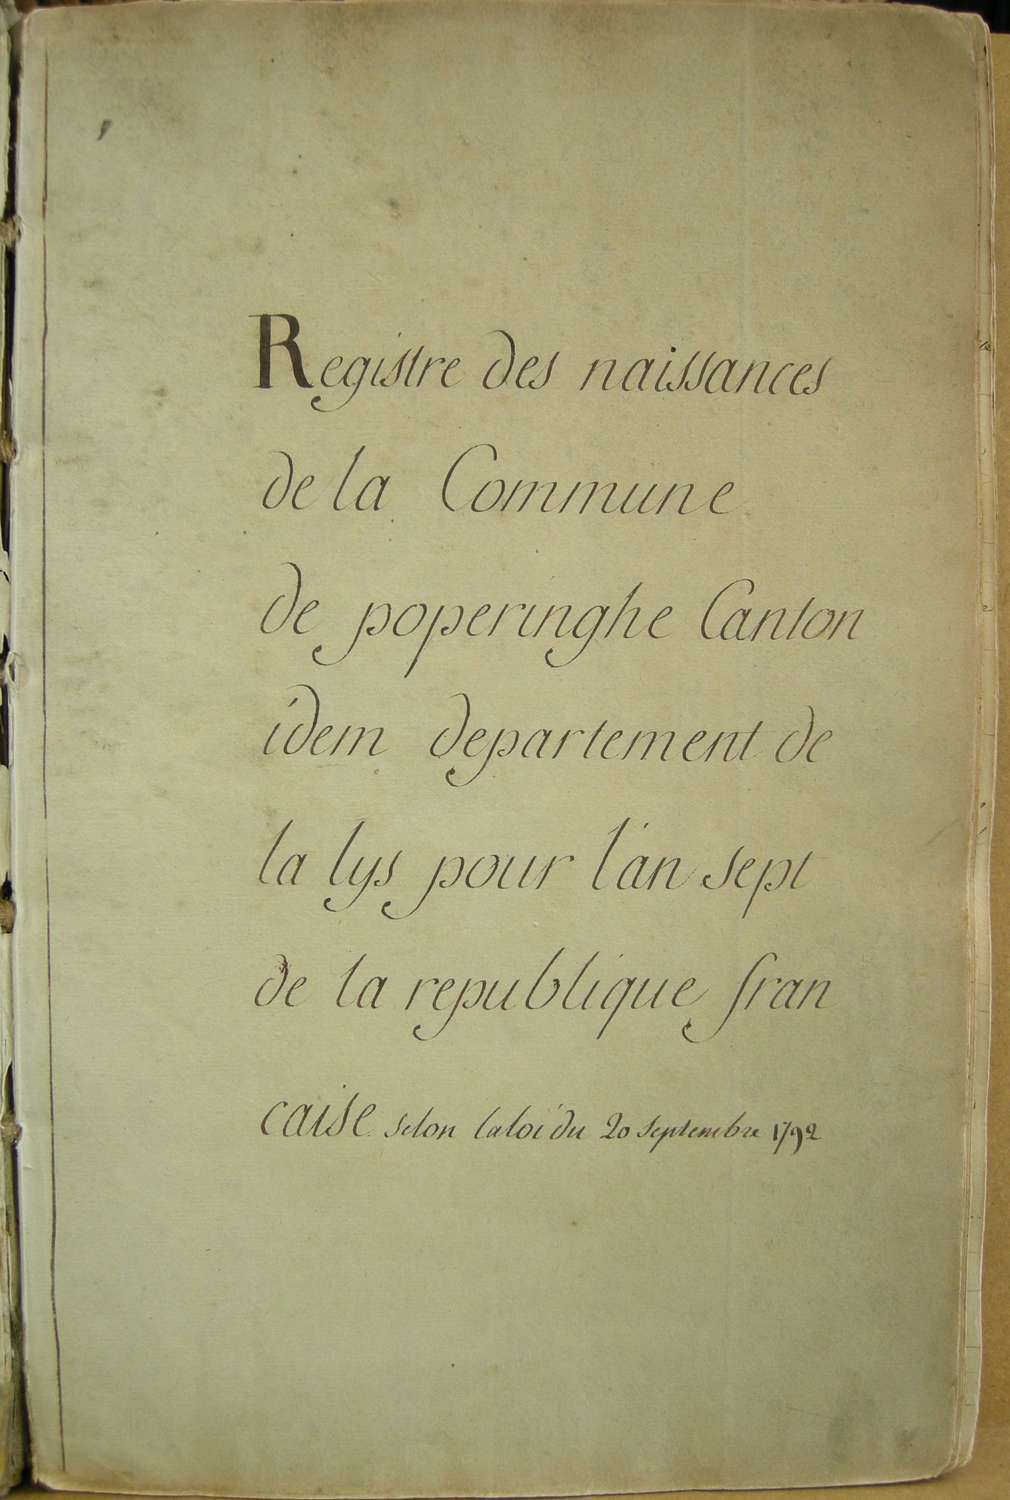 Registre des naissances
de la Commune
de poperinghe Canton
idem departement de
la lys pour l'an sept
de la republique fran
caise selon la loi du 20 septembre 1792